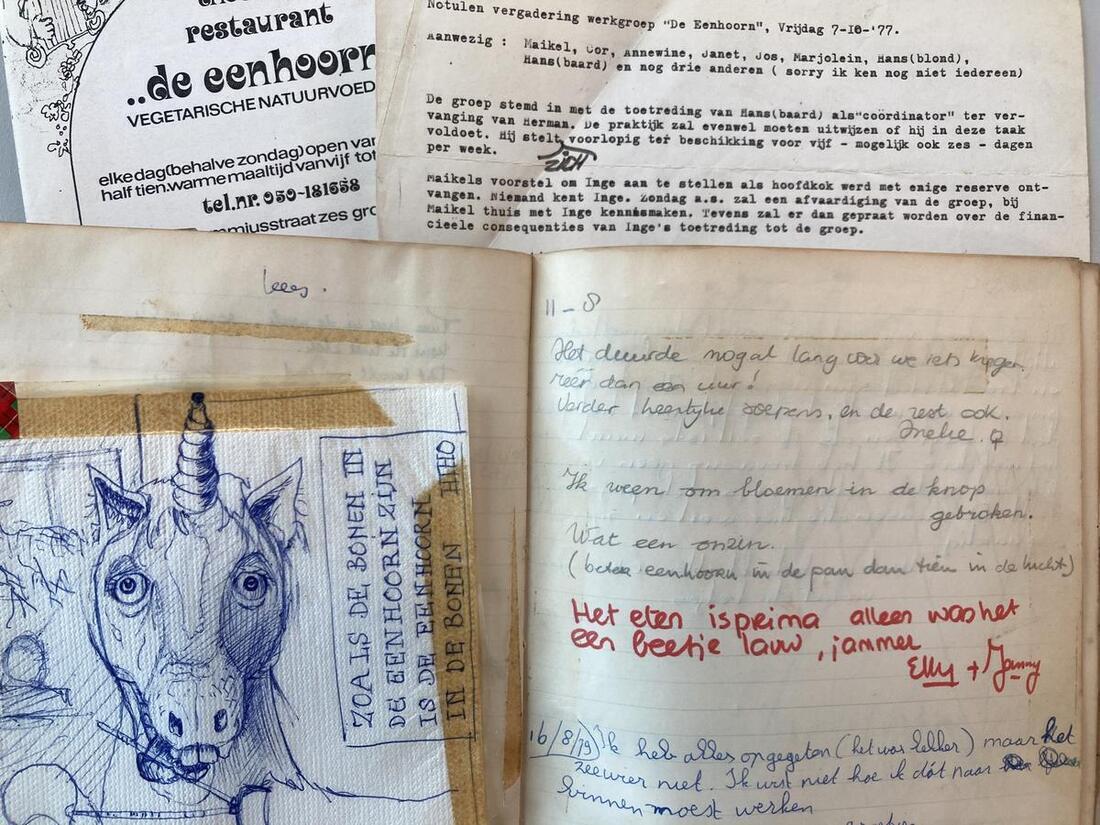 restaurant
..de eenhoorn
VEGETARISCHE NATUURVOED
elke dag(behalve zondag)open van
half tien.warme maaltijd van vijf tot
tel.nr. 050-181658
mmiusstraat zes gro
Notulen vergadering werkgroep "De Eenhoorn", Vrijdag 7-10-'77.
Aanwezig : Maikel, Cor, Annewine, Janet, Jos, Marjolein, Hans(blond),
Hans(baard) en nog drie anderen ( sorry ik ken nog niet iedereen)
De groep stemd in met de toetreding van Hans(baard) als"coördinator" ter ver-
vanging van Herman. De praktijk zal evenwel moeten uitwijzen of hij in deze taak
voldoet. Hij stelt voorlopig ter beschikking voor vijf - mogelijk ook zes - dagen
per week.
ZICH
Maikels voorstel om Inge aan te stellen als hoofdkok werd met enige reserve ont-
vangen. Niemand kent Inge. Zondag a.s. zal een afvaardiging van de groep, bij
Maikel thuis met Inge kennismaken. Tevens zal er dan gepraat worden over de finan-
cieële consequenties van Inge's toetreding tot de groep.
lees.
ZOALS DE BONEN IN
DE EENHOORN ZIJN
IS DE EENHOORN
IN DE BONEN HIHO
11-8
Het duurde nogal lang voor we iets kregen
meer dan een uur!
Verder heerlijke soepens, en de rest ook.
Ineke. ♀
Ik ween om bloemen in de knop
gebroken.
Wat een onzin.
(beter eenhoorn in de pan dan tien in de lucht)
Het eten is prima alleen was het
een beetje lauw, jammer
Elly + Janny
16/8/79 Ik heb alles opgegeten (het was lekker) maar het
zeewier niet. Ik wist niet hoe ik dát naar
binnen moest werken